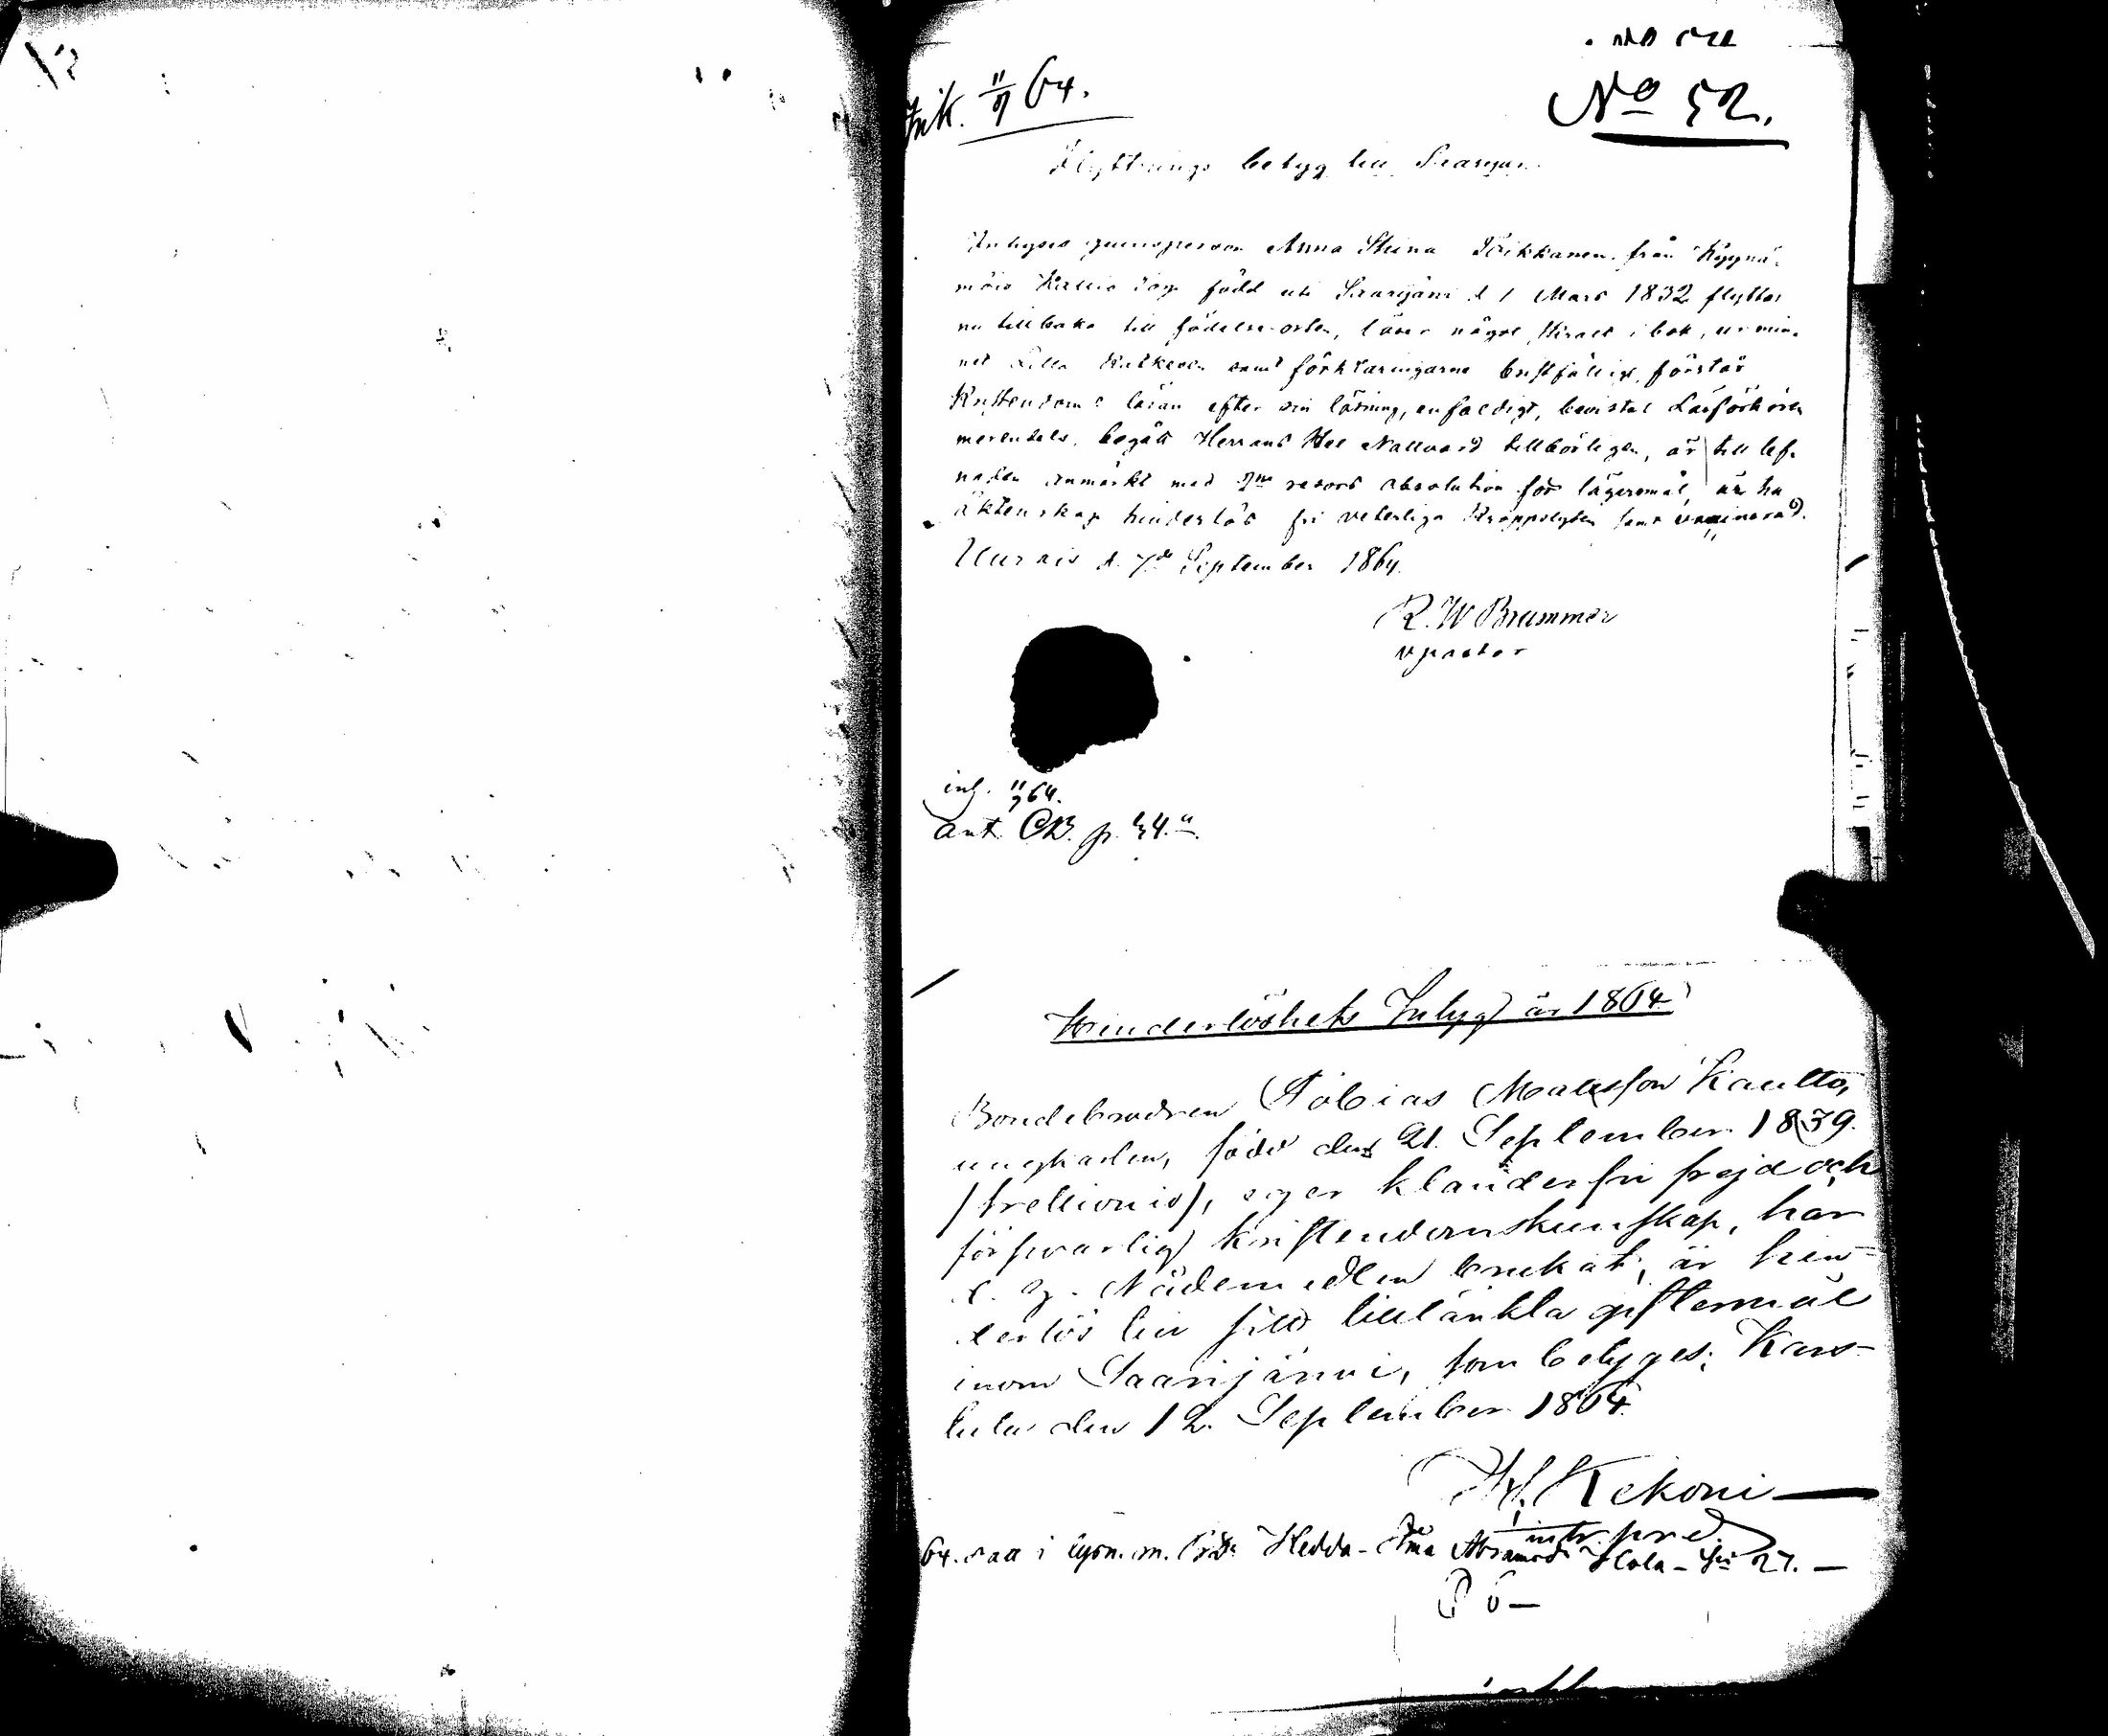 Ink. 11/9 64.
No 52.
Flyttnings betyg till Saarijär.
Intygas qvinsperson Anna Stina Töikkanen från Kyynä-
möis Kallio torp född uti Saarijärvi d 1 Mars 1832 flyttar
nu tillbaka till födelse-orten, läser något svart i bok, ur min-
net Lilla Katkesen samt förklaringarne bristfälligt, förstår
Kristendoms läran efter sin läsning, enfaldigt, bevistat Läsförhören
merendels, begått Herrans Hel Nattvard tillbörligen, är till lef-
naden anmärkt med 2ne resors absolution för lägersmål, är till
äktenskap hinderlös fri veterliga Kroppslyten samt vaccinerad.
Uurais d. 7de September 1864.
R. W Brummer
v pastor
inf. 11/9 64.
ant CB. p. 54.
Hinderlöshets Intyg år 1864
Bondebrodren Tobias Mattsson Kautto,
ungkarlen, född den 21. September 1839.
/trettionio/, eger klanderfri frejd och
försvarlig kristendomskunskap, har
d. y. Nådemedlen brukat, är hin-
derlös till sitt tilltänkta giftermål
inom Saarijärvi, som betyges; Kars-
tula den 12. September 1864.
Kekoni
intr. pred.
64. i lysn. m. Hedda
27.